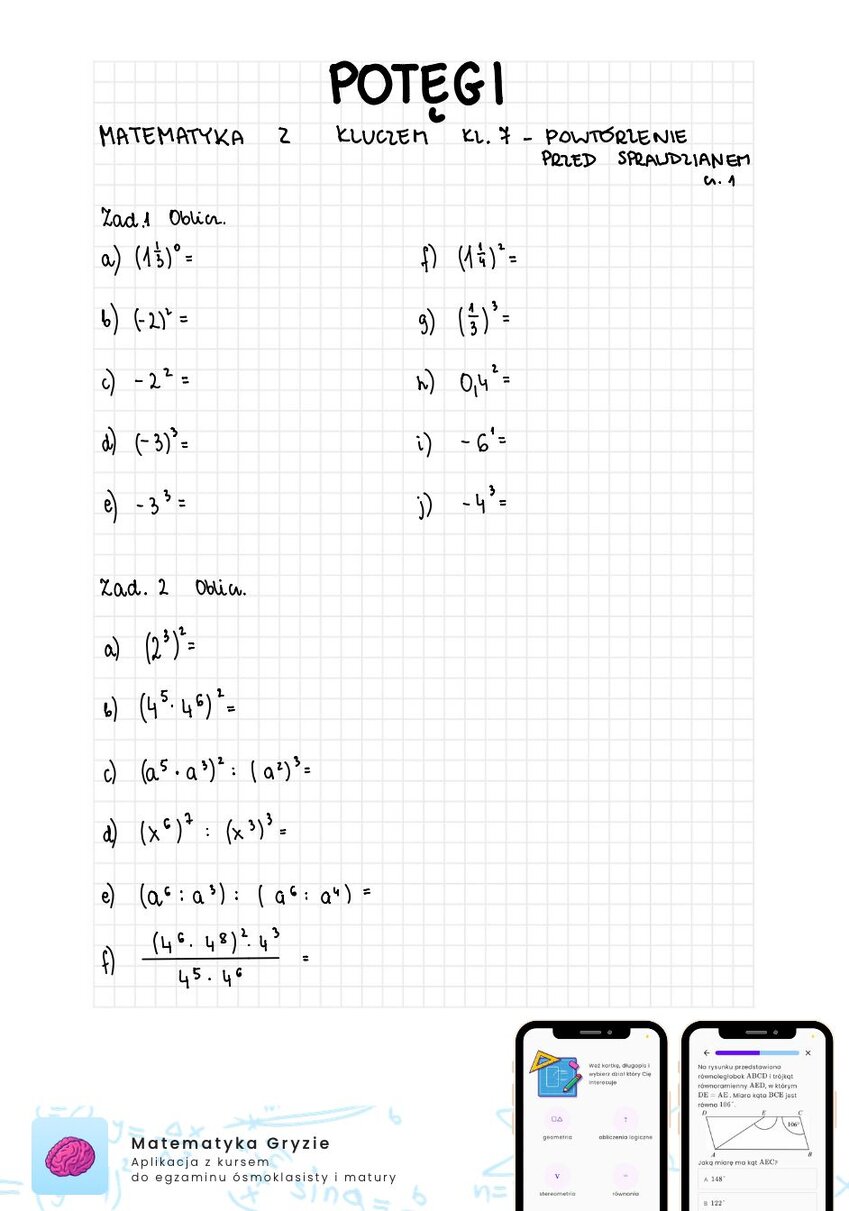 POTĘGI
MATEMATYKA Z KLUCZEM KL. 7 - POWTÓRZENIE
PRZED SPRAWDZIANEM
cz. 1
Zad.1 Oblicz.
a) (1 1/3)⁰ =
b) (-2)² =
c) -2² =
d) (-3)³ =
e) -3³ =
f) (1 1/4)² =
g) (1/3)³ =
h) 0,4² =
i) -6¹ =
j) -4³ =
Zad. 2 Oblicz.
a) (2³)² =
b) (4⁵ · 4⁶)² =
c) (a⁵ · a³)² : (a²)³ =
d) (x⁶)⁷ : (x³)³ =
e) (a⁶ : a³) : (a⁶ : a⁴) =
f) (4⁶ · 4⁸)² · 4³ / 4⁵ · 4⁶ =
Matematyka Gryzie
Aplikacja z kursem
do egzaminu ósmoklasisty i matury
Weź kartkę, długopis i
wybierz dział który Cię
interesuje
geometria
obliczenia logiczne
stereometria
równania
Na rysunku przedstawiono
równoległobok ABCD i trójkąt
równoramienny AED, w którym
DE = AE. Miara kąta BCE jest
równa 106°.
D E C
106°
A B
Jaką miarę ma kąt AEC?
A 148°
B 122°